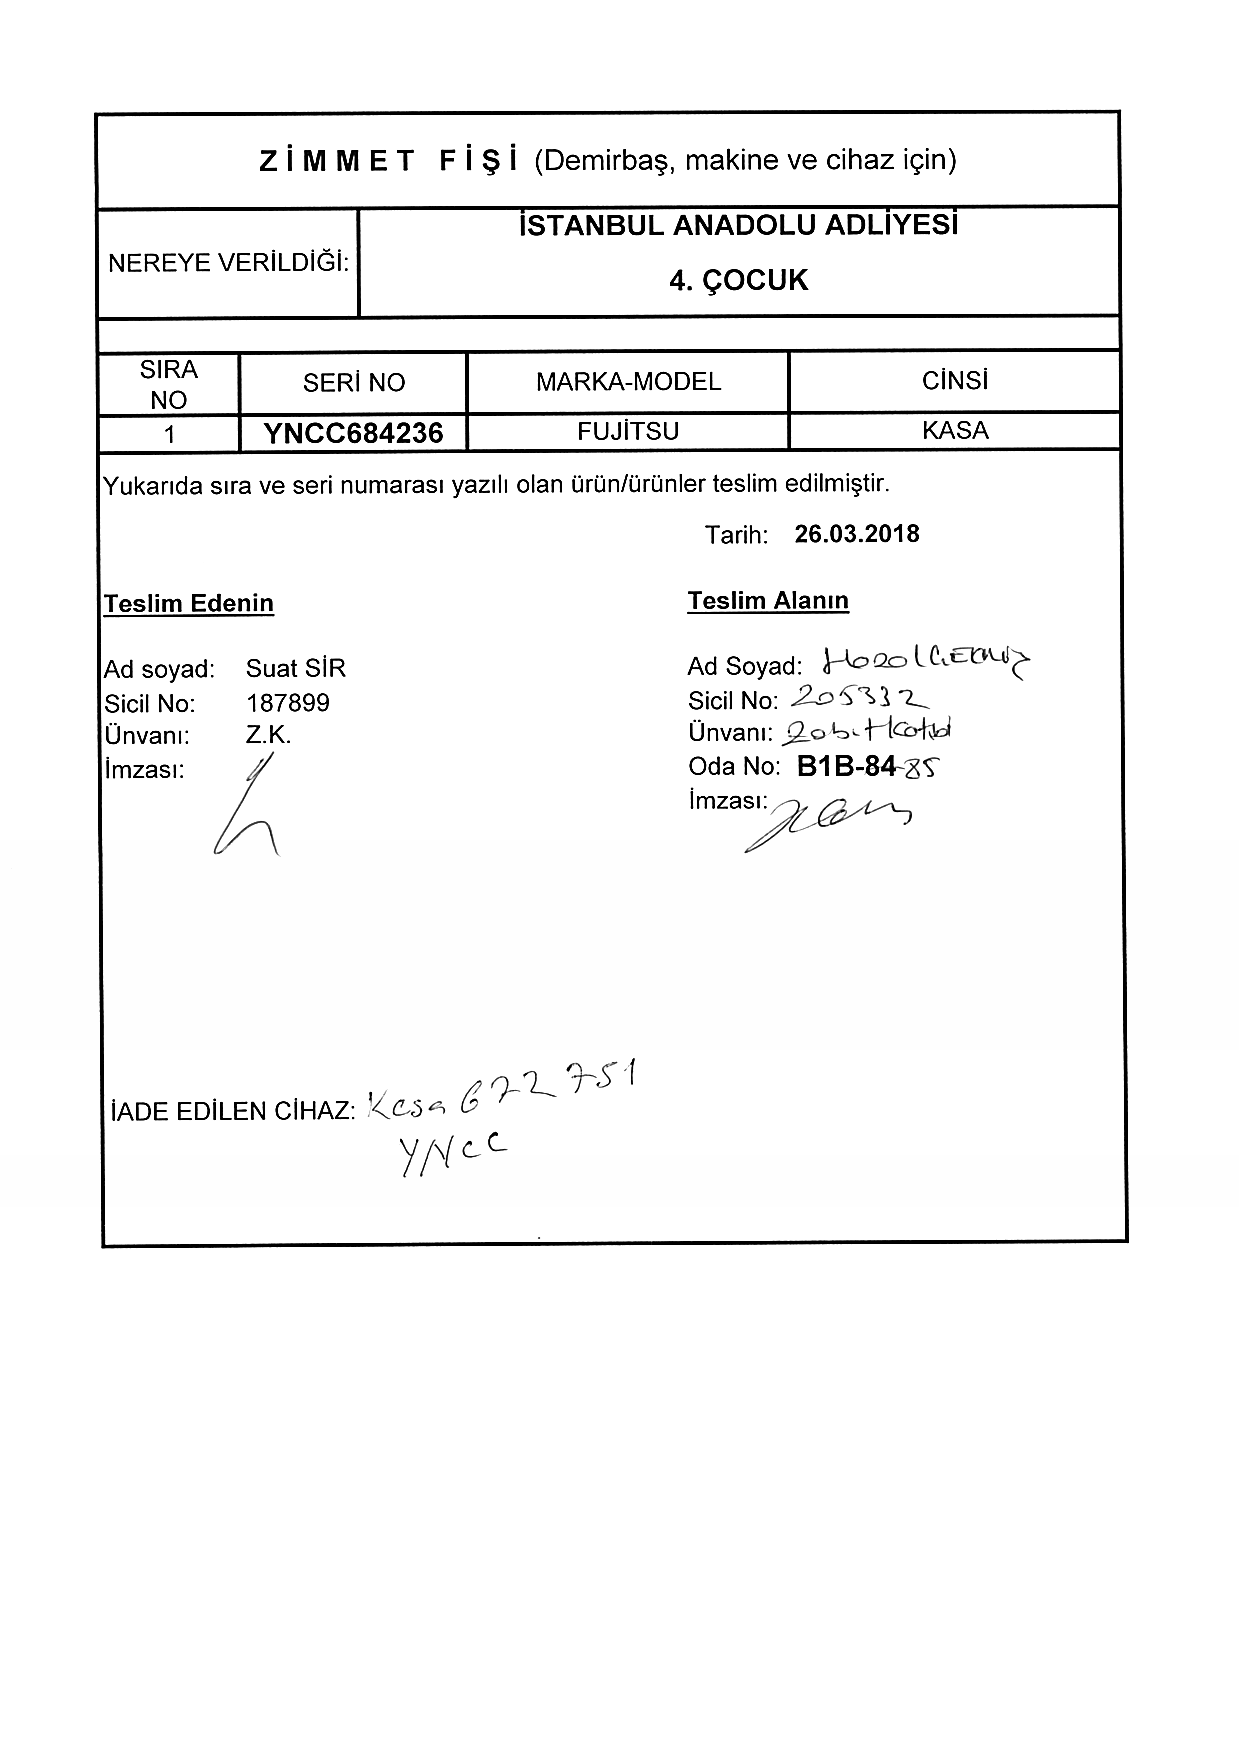 ZİMMET FİŞİ (Demirbaş, makine ve cihaz için)
NEREYE VERİLDİĞİ:
İSTANBUL ANADOLU ADLİYESİ
4. ÇOCUK
SIRA NO SERİ NO MARKA-MODEL CİNSİ
1 YNCC684236 FUJİTSU KASA
Yukarıda sıra ve seri numarası yazılı olan ürün/ürünler teslim edilmiştir.
Tarih: 26.03.2018
Teslim Edenin
Ad soyad: Suat SİR
Sicil No: 187899
Ünvanı: Z.K.
İmzası:
Teslim Alanın
Ad Soyad:
Sicil No: 205332
Ünvanı: Zabıt Katibi
Oda No: B1B-84-85
İmzası:
İADE EDİLEN CİHAZ: Kasa 672751
YNCC